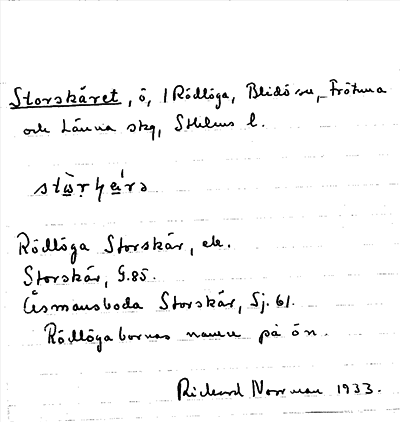 Storskäret, ö, / Rödlöga, Blidö sn, Frötuna
och Länna skg, Sthlms l.
Rödlöga Storskär, ek.
Storskär, G.85.
Åsmansboda Storskär, Sj. 61.
Rödlögabornas namn på ön.
Rickard Norrman 1933.